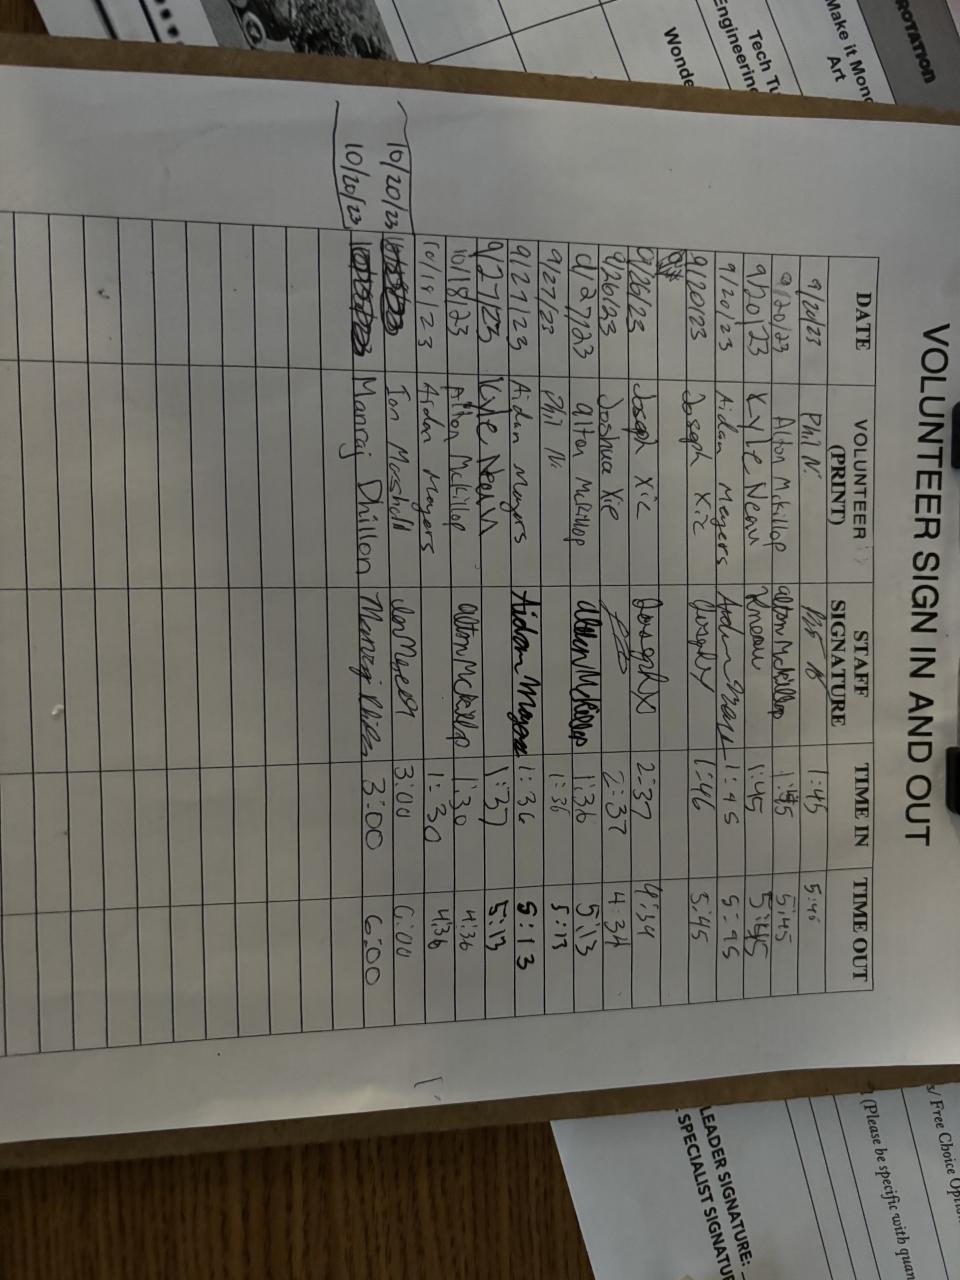 ROTATION
Make it Mond
Art
Tech Tu
Engineering
Wonde
VOLUNTEER SIGN IN AND OUT
DATE VOLUNTEER (PRINT) STAFF SIGNATURE TIME IN TIME OUT
9/20/23 Phil N. 1:45 5:45
9/20/23 Alton McKillop Alton McKillop 1:45 5:45
9/20/23 Kyle Neau Kneau 1:45 5:45
9/20/23 Aidan Meyers 1:45 5:45
9/20/23 Joseph Xie Joseph X 1:46 5:45
9/26/23 Joseph Xie Joseph X 2:37 4:34
9/26/23 Joshua Xie 2:37 4:34
9/27/23 alton McKillop alton McKillop 1:36 5:13
9/27/23 Phil N. 1:36 5:13
9/27/23 Aidan Mayers Aidan Mayers 1:36 5:13
9/27/23 Kyle Neau 1:37 5:13
10/18/23 Alton McKillop alton McKillop 1:30 4:36
10/18/23 Aidan Mayers 1:30 4:36
10/20/23 Ian 3:00 6:00
10/20/23 Manraj Dhillon 3:00 6:00
s/ Free Choice Optio
(Please be specific with quan
LEADER SIGNATURE:
SPECIALIST SIGNATUR